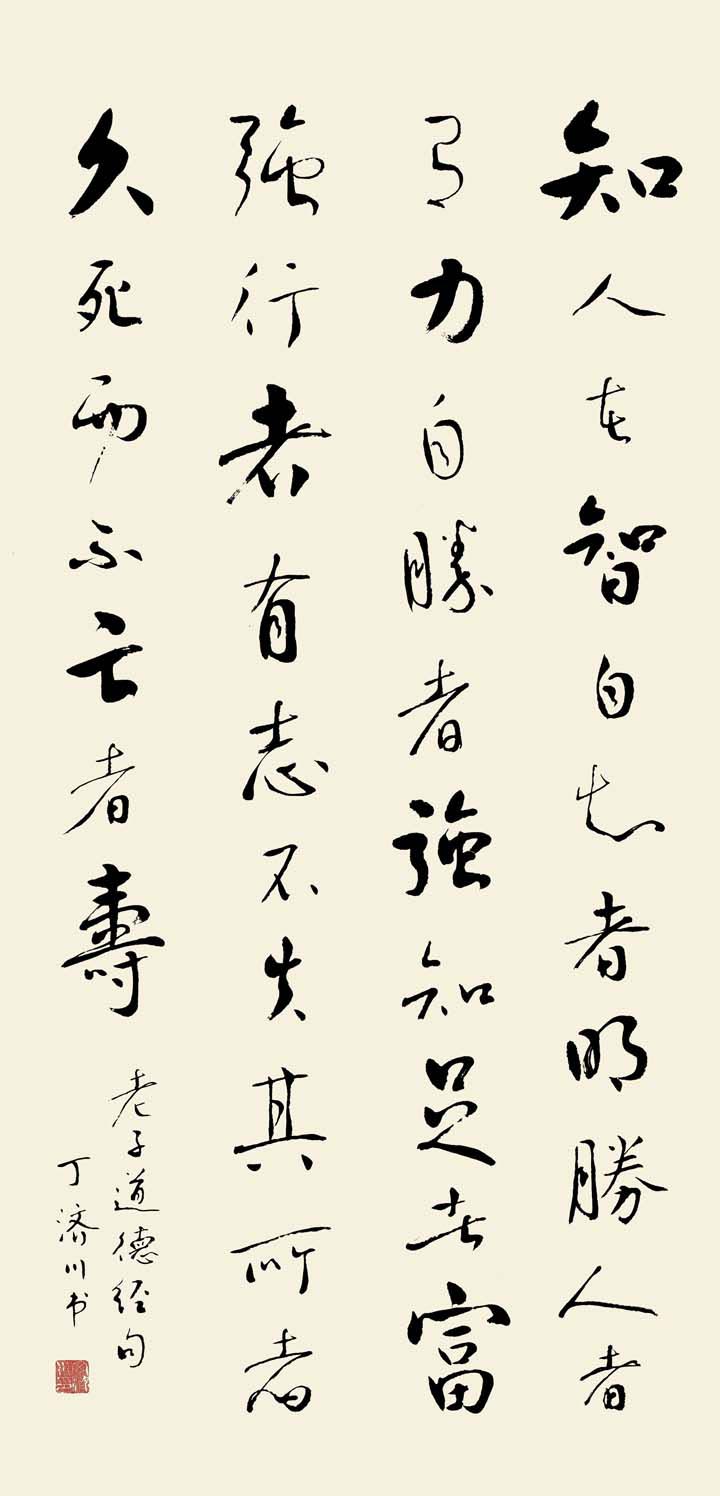 知人者智自知者明勝人者
有力自勝者強知足者富
強行者有志不失其所者
久死而不亡者壽
老子道德经句
丁济川书